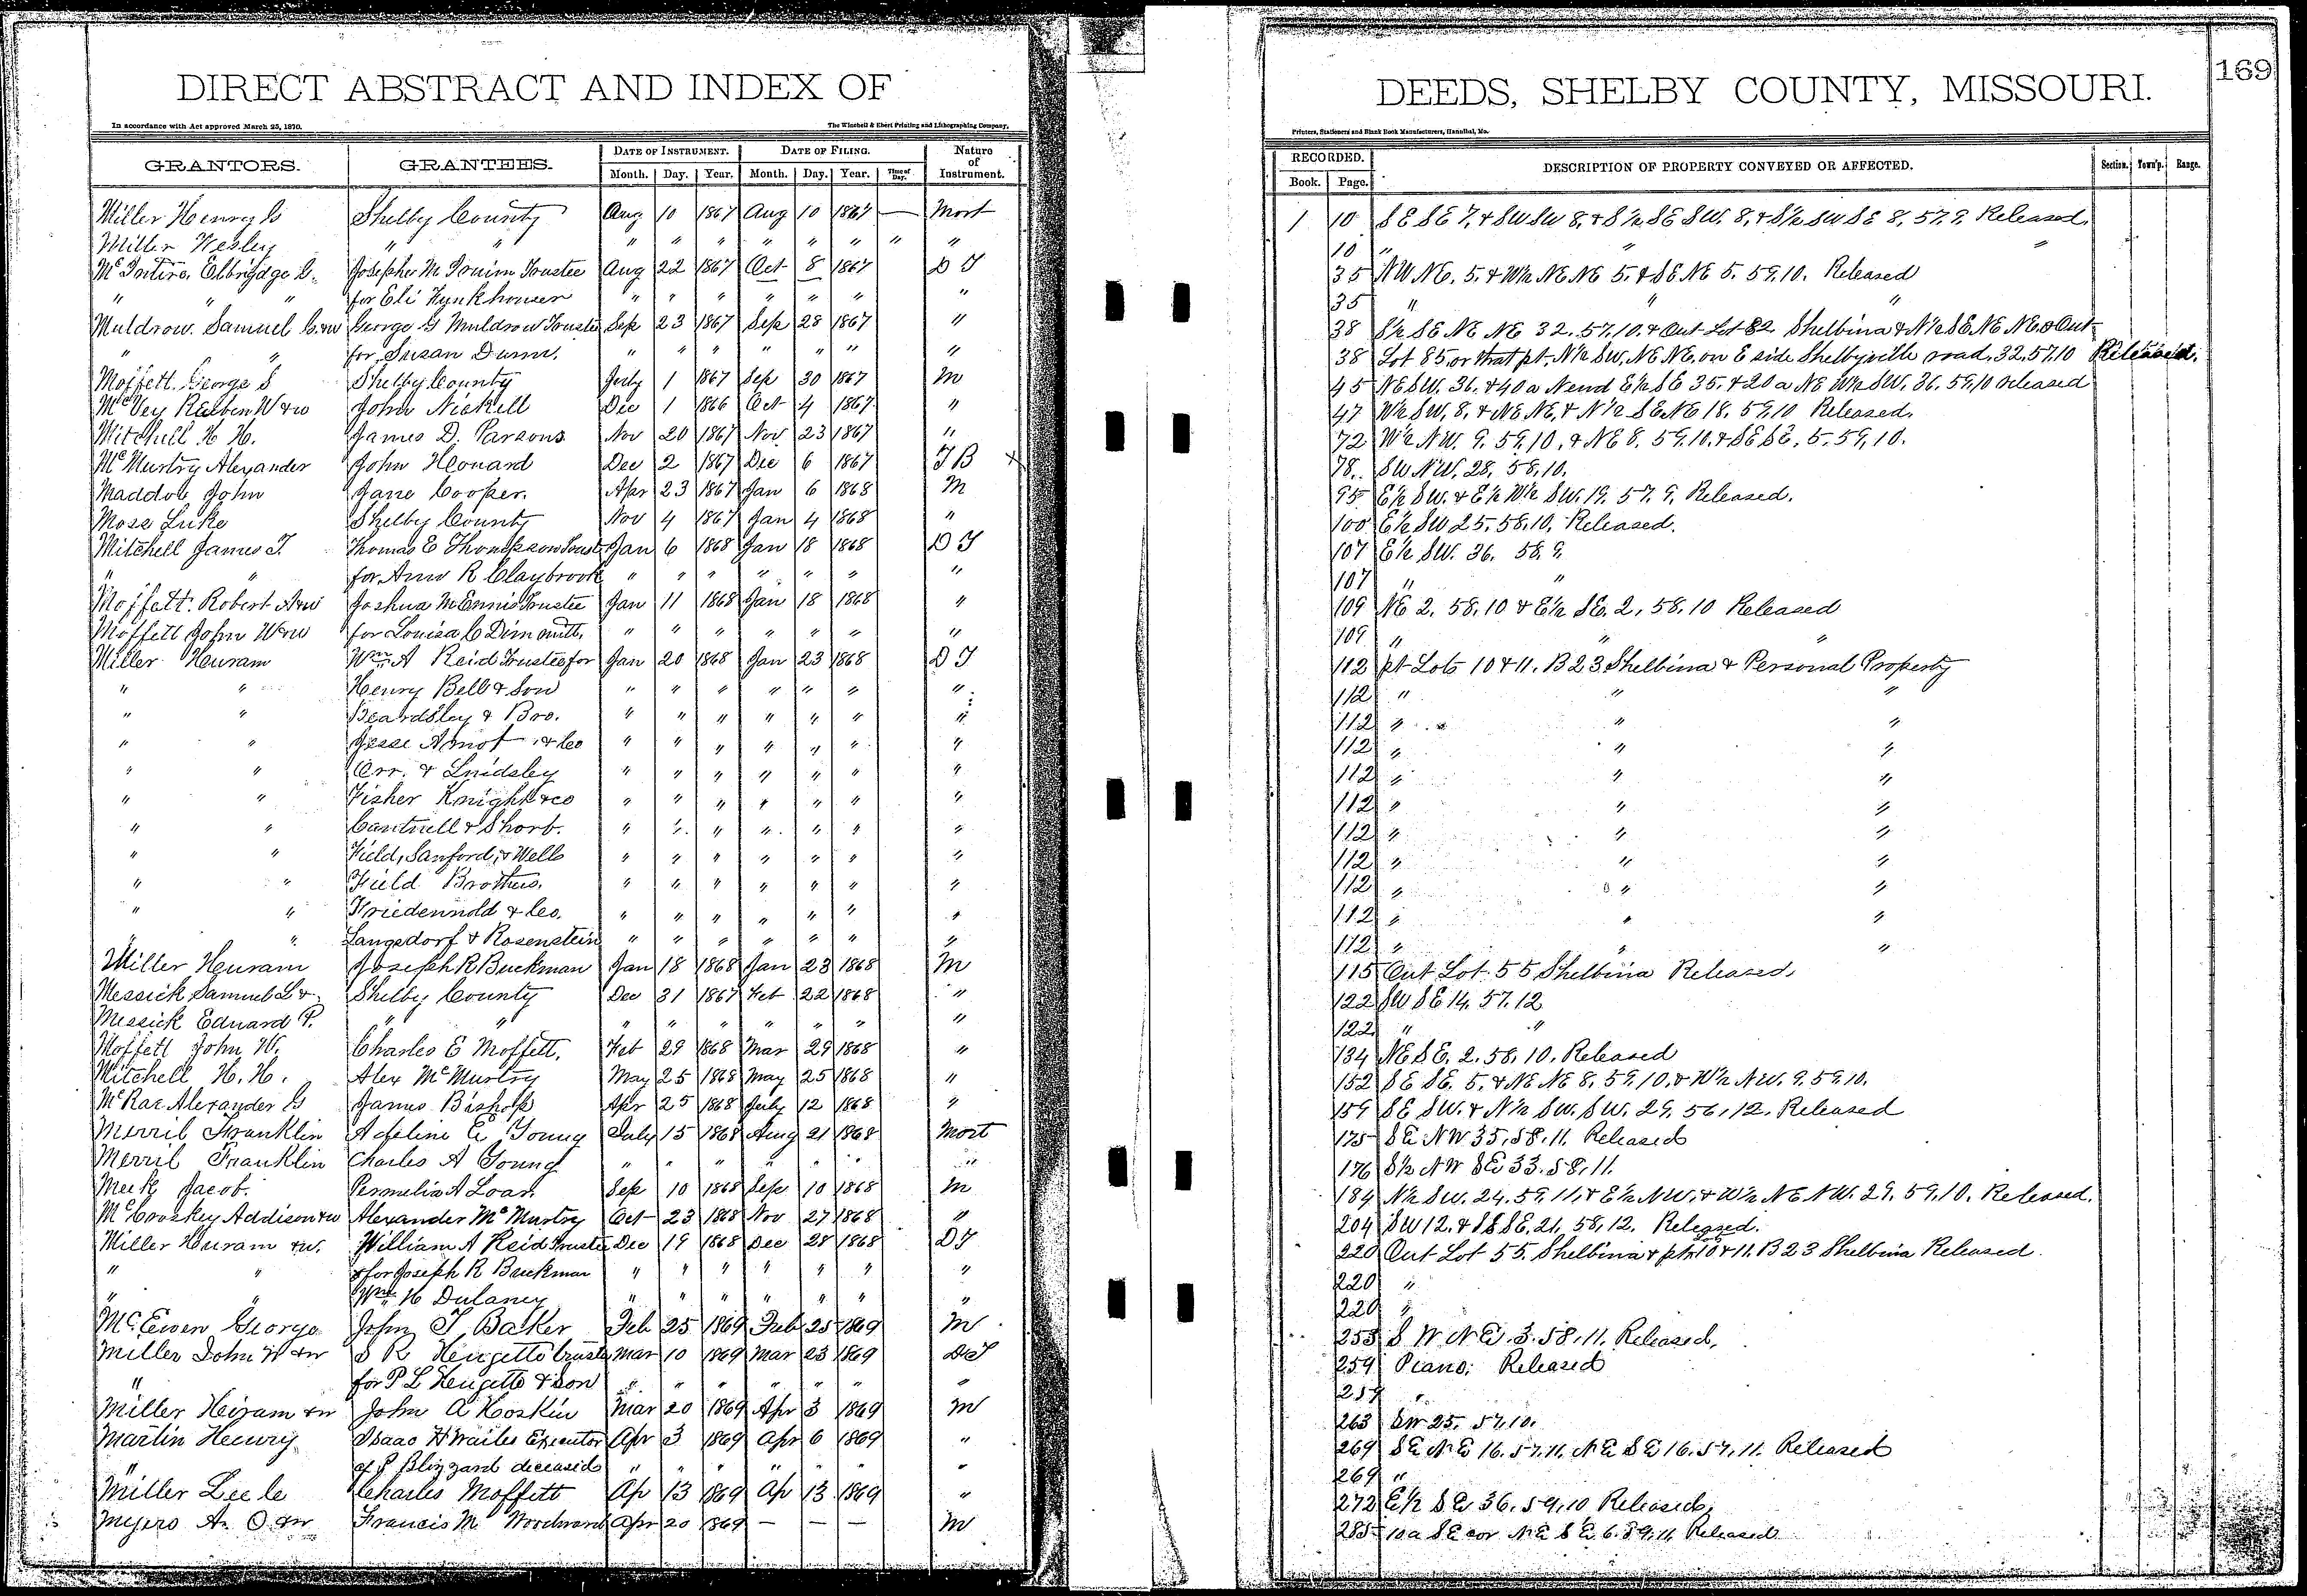 DIRECT ABSTRACT AND INDEX OF
In accordance with Act approved March 25, 1870.
The Winchell & Ebert Printing and Lithographing Company,
GRANTORS. GRANTEES. DATE OF INSTRUMENT. DATE OF FILING. Nature of Instrument.
Month. Day. Year. Month. Day. Year. Time of Day.
Miller Henry G Shelby County Aug 10 1867 Aug 10 1867 — Mort
Miller Wesley " " " " " " " " " "
McIntire, Elbrigdge G. Josephus M Irvine Trustee Aug 22 1867 Oct 8 1867 D T
" " " for Eli Fynkhouser " " " " " " "
Muldrow. Samuel G. &w George G Muldrow Trustee Sep 23 1867 Sep 28 1867 "
" " for Susan Dunn. " " " " " " "
Moffett. George S Shelby County July 1 1867 Sep 30 1867 M
McVey Reuben W &w John Nickell Dec 1 1866 Oct 4 1867 "
Mitchell H H. James D. Parsons Nov 20 1867 Nov 23 1867 "
McMurtry Alexander John Leonard Dec 2 1867 Dec 6 1867 T B X
Maddox John Jane Cooper. Apr 23 1867 Jan 6 1868 M
Moss Luke Shelby County Nov 4 1867 Jan 4 1868 "
Mitchell James T. Thomas E Thompson Trust Jan 6 1868 Jan 18 1868 D T
" " for Ann R Claybrook " " " " " " "
Moffett. Robert A &w Joshua M Ennis Trustee Jan 11 1868 Jan 18 1868 "
Moffett John W &w for Louisa C Dimmitt. " " " " " " "
Miller Heuram Wm A Reid Trustee for Jan 20 1868 Jan 23 1868 D T
" " Henry Bell & Son " " " " " " "
" " Beardsley & Bro. " " " " " " "
" " Jesse Arnot & Co " " " " " " "
" " Orr. & Lindsley " " " " " " "
" " Fisher Knight & co " " " " " " "
" " Cantwell & Shorb. " " " " " " "
" " Field, Sanford, & Wells " " " " " " "
" " Field Brothers. " " " " " " "
" " Friedennold & Co. " " " " " " "
" " Langsdorf & Rosenstein " " " " " " "
Miller Heuram Joseph R Buckman Jan 18 1868 Jan 23 1868 M
Messick Samuel L & Shelby County Dec 31 1867 Feb 22 1868 "
Messick Edward P. " " " " " " " " "
Moffett John W. Charles E Moffett. Feb 29 1868 Mar 29 1868 "
Mitchell H. H. Alex McMurtry May 25 1868 May 25 1868 "
McRae Alexander G James Bishop Apr 25 1868 July 12 1868 "
Merril Franklin Adeline E Young July 15 1868 Aug 21 1868 Mort
Merril Franklin Charles A Young " " " " " " "
Meek Jacob. Permelia A Loan Sep 10 1868 Sep 10 1868 M
McCroskey Addison &w Alexander McMurtry Oct 23 1868 Nov 27 1868 "
Miller Heuram &w. William A Reid Trustee Dec 19 1868 Dec 28 1868 D T
" " & for Joseph R Buckman " " " " " " "
" " Wm H Dulaney " " " " " " "
McEwen George John T Baker Feb 25 1869 Feb 25 1869 M
Miller John W &w S R Hengetts trustee Mar 10 1869 Mar 23 1869 D T
" for P L Hengetts & Son " " " " " " "
Miller Hiram &w John A Hoskin Mar 20 1869 Apr 3 1869 M
Martin Henry Isaac H Wailes Executor Apr 3 1869 Apr 6 1869 "
" of J Blizzard deceased " " " " " " "
Miller Lee le Charles Moffett Ap 13 1869 Ap 13 1869 "
Myers A. O. &w Francis M Woodward Apr 20 1869 — — — M
DEEDS, SHELBY COUNTY, MISSOURI.
169
Printers, Stationers and Blank Book Manufacturers, Hannibal, Mo.
RECORDED. DESCRIPTION OF PROPERTY CONVEYED OR AFFECTED. Section. Town'p. Range.
Book. Page.
1 10 S E S E 7, & SW SW 8, & S½ SE SW. 8, & S½ SW SE 8, 57, 9. Released.
10 " " "
35 NW NE. 5. & W½ NE NE 5. & SE NE 5. 59. 10. Released
35 " " "
38 S½ SE NE NE 32. 57, 10, & Out Lot 82 Shelbina & N½ SE NE NE & Out
38 Lot 85 or that pt. N½ SW. NE NE. on E side Shelbyville road, 32, 57, 10 Released.
45 NE SW. 36. & 40 a N end E½ SE 35. & 20 a NE W½ SW. 36. 59, 10 released
47 W½ SW, 8. & NE NE, & N½ SE NE 18. 59, 10 Released.
72 W½ NW. 9. 59, 10, & NE 8. 59, 10. & SE SE, 5. 59, 10.
78. SW NW, 28, 58, 10.
95 E½ SW. & E½ W½ SW. 19. 57. 9. Released.
100 E½ SW 25, 58, 10, Released.
107 E½ SW. 36. 58, 9.
107 " "
109 NE 2. 58. 10 & E½ SE. 2, 58. 10 Released
109 " " "
112 pt Lots 10 & 11. B 23 Shelbina & Personal Property
112 " " "
112 " " "
112 " " "
112 " " "
112 " " "
112 " " "
112 " " "
112 " " "
112 " " "
112 " " "
115 Out Lot 55 Shelbina Released,
122 SW SE 14. 57. 12
122 " "
134 NE SE. 2. 58. 10. Released
152 SE SE. 5. & NE NE 8. 59. 10. & W½ NW. 9. 59. 10.
159 SE SW. & N½ SW. SW. 29. 56, 12. Released
175 SE NW 35, 58, 11. Released
176 S½ NW SE 33. 58, 11.
184 N½ SW. 24. 59, 11, & E½ NW, & W½ NE NW. 29. 59, 10. Released.
204 SW 12. & SE SE. 21, 58, 12. Released.
220 Out Lot 55. Shelbina & pts 10 & 11. B 23 Shelbina Released.
220 "
220 "
253 S W N E. 3. 58, 11. Released,
259 Piano: Released
259 "
263 SW 25. 57, 10.
269 SE NE 16. 57, 11. NE SE 16. 57, 11. Released
269 "
272 E½ SE 36. 59, 10 Released,
285 10 a SE cor NE SE 6. 59, 11, Released